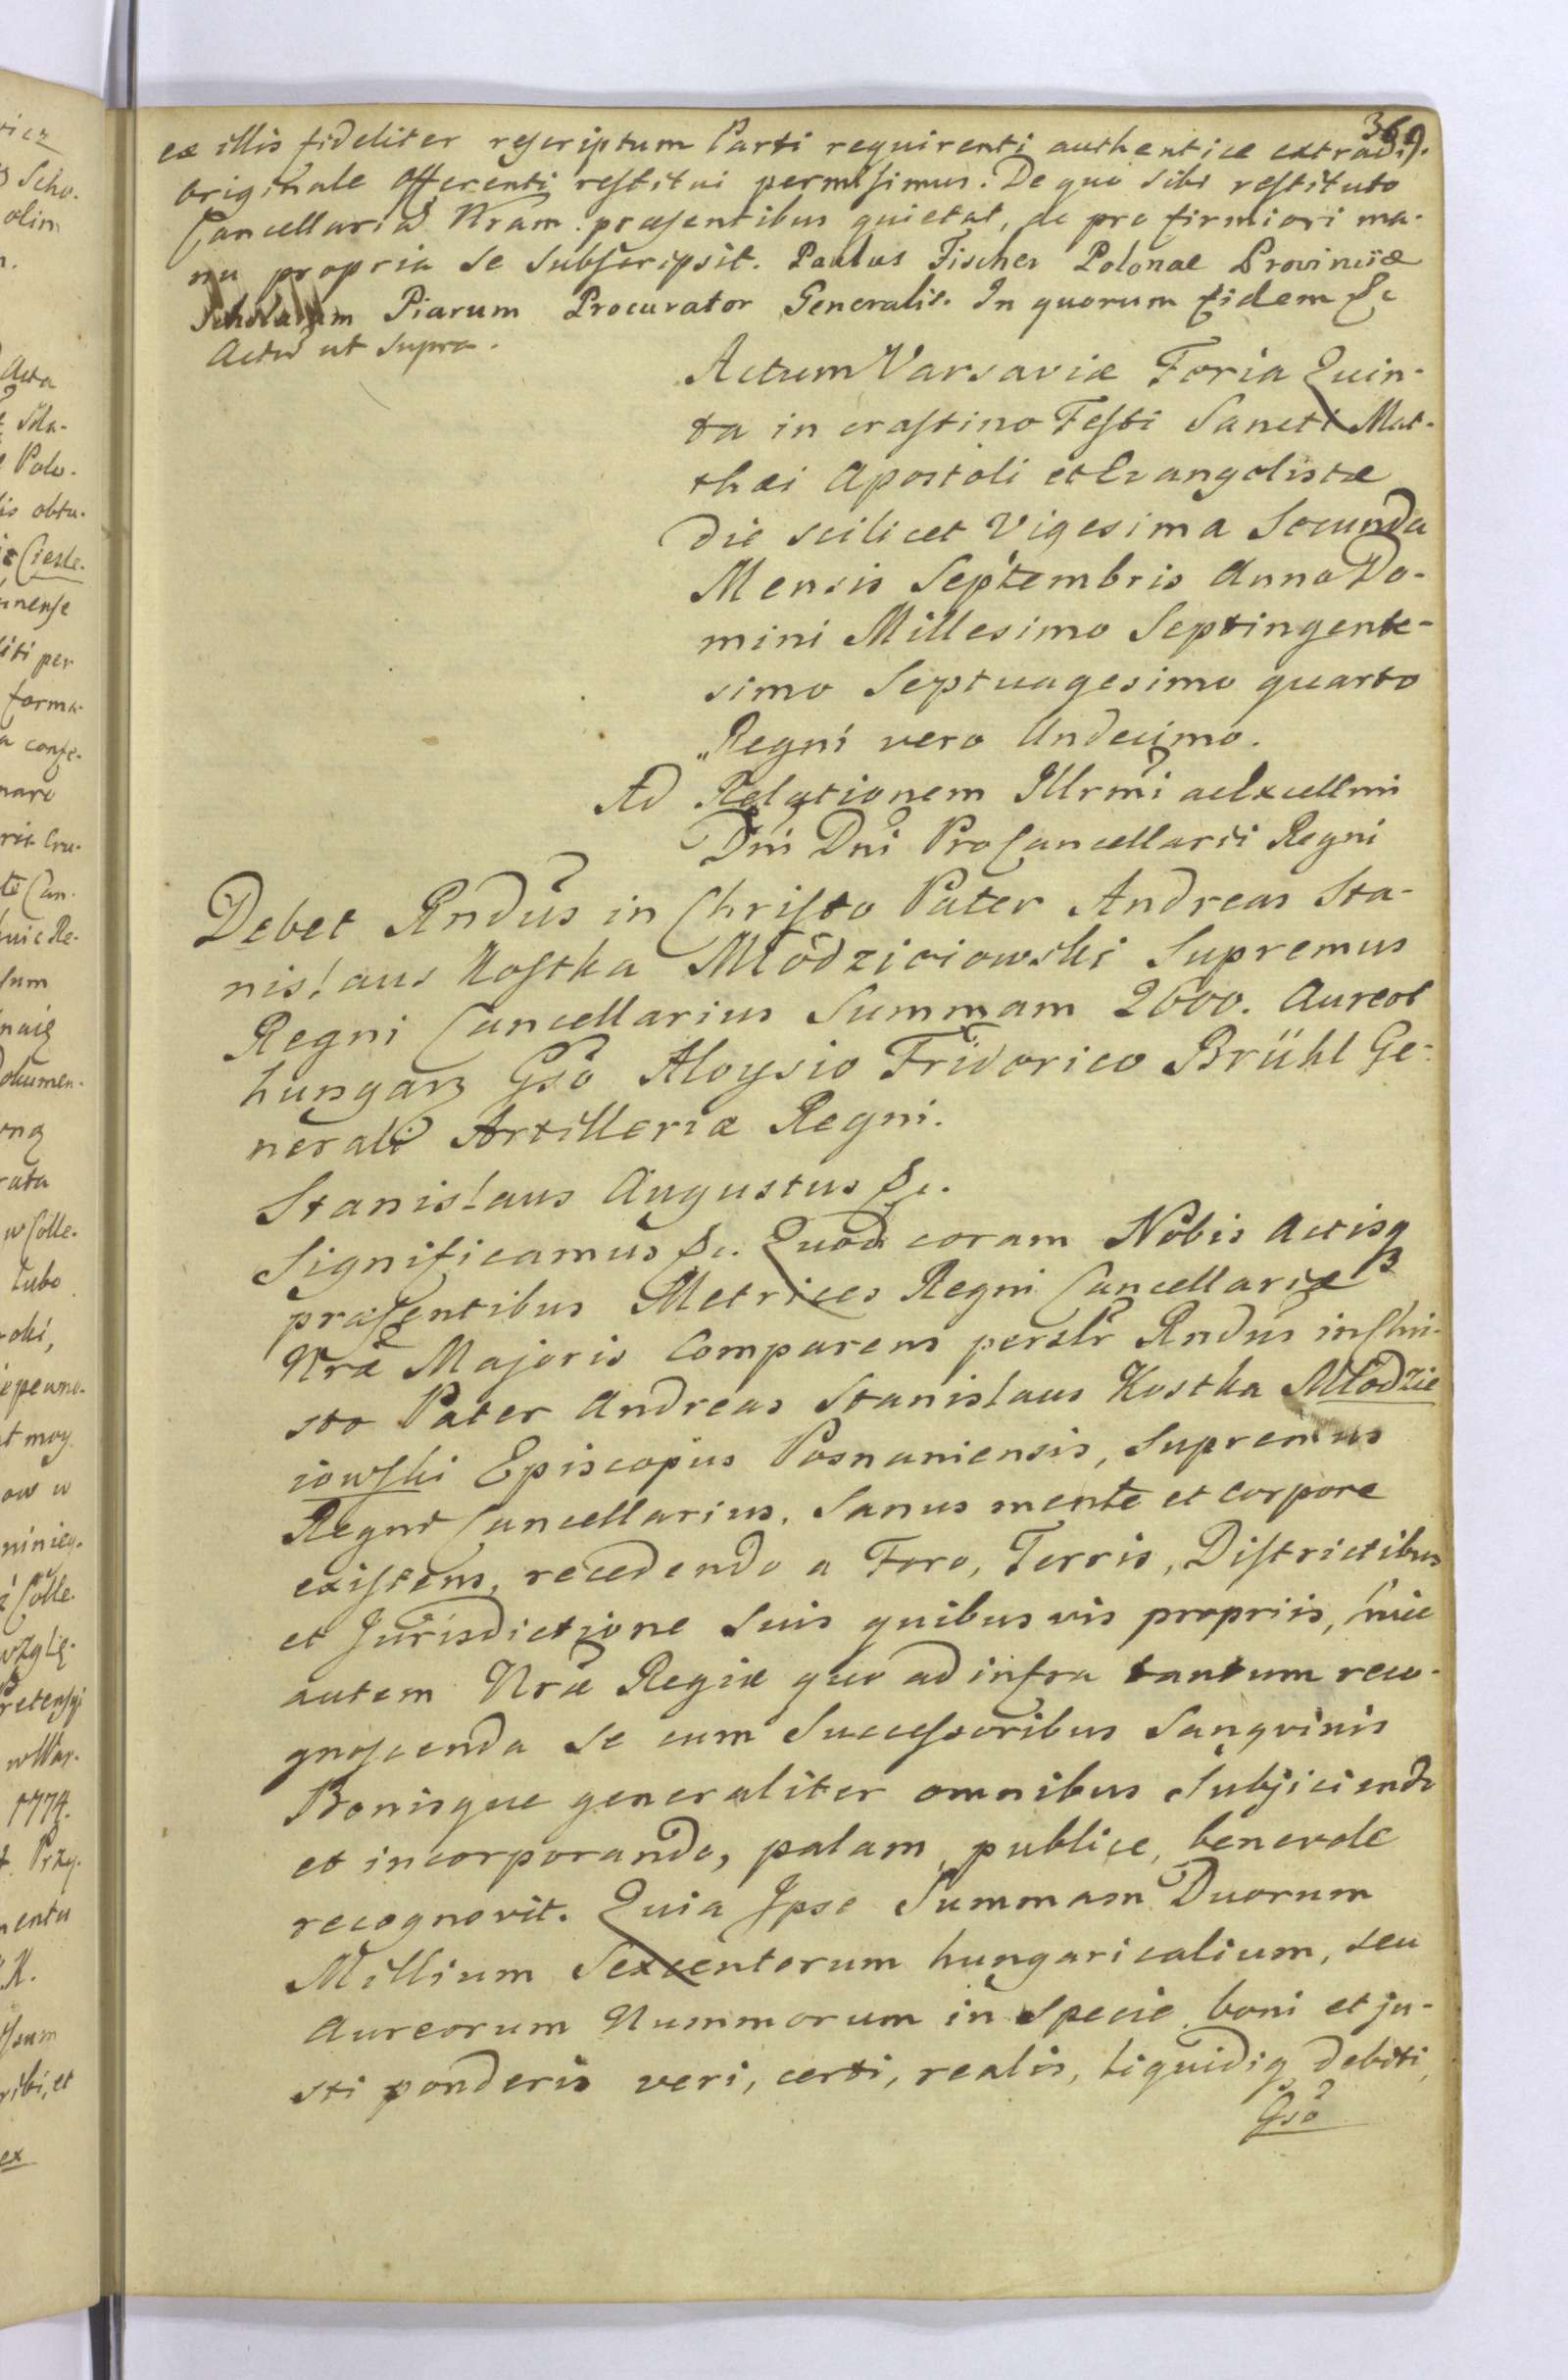 369.
ex illis fideliter rescriptum Parti requirenti authentice extradi,
originale offerenti restitui permisimus. De quo sibi restituto
Cancellariã Nram præsentibus quietat, ac pro firmiori ma-
nu propria se subscripsit. Paulus Fischer Polonae Provinciæ
Scholarum Piarum Procurator Generalis. In quorum fidem &c
Actũ ut supra.
Actum Varsaviæ Feria Quin-
ta in crastino Festi Sancti Mat-
thæi Apostoli et Evangelistæ
Die scilicet Vigesima Secunda
Mensis Septembris Anno Do-
mini Millesimo Septingente-
simo Septuagesimo quarto
Regni vero Undecimo.
Ad Relationem Illrmi ac Excellmi
Dni Dni ProCancellarii Regni
Debet Rndus in Christo Pater Andreas Sta-
nislaus Kostka Młodzieiowski Supremus
Regni Cancellarius Summam 2600. Aureor
hungarz Gso Aloysio Friderico Brühl Ge-
nerali Artilleriæ Regni.
Stanislaus Augustus &c.
Significamus &c. Quod coram Nobis Actisq
præsentibus Metrices Regni Cancellariæ
Nræ Majoris Comparens perslr Rndus in Chri-
sto Pater Andreas Stanislaus Kostka Młodzie
iowski Episcopus Posnaniensis, Supremus
Regni Cancellarius, Sanus mente et corpore
existens, recedendo a Foro, Terris, Districtibus
et Jurisdictione suis quibusvis propriis, huic
autem Nræ Regiæ quo ad infra tantum reco-
gnoscenda se cum Successoribus Sangvinis
Bonisque generaliter omnibus Subjiciendo
et incorporando, palam, publice, benevole
recognovit. Quia Ipse Summam Duorum
Millium Sexcentorum hungaricalium, seu
Aureorum Nummorum in specie boni et ju-
sti ponderis veri, certi, realis, liquidiq debiti,
Gso